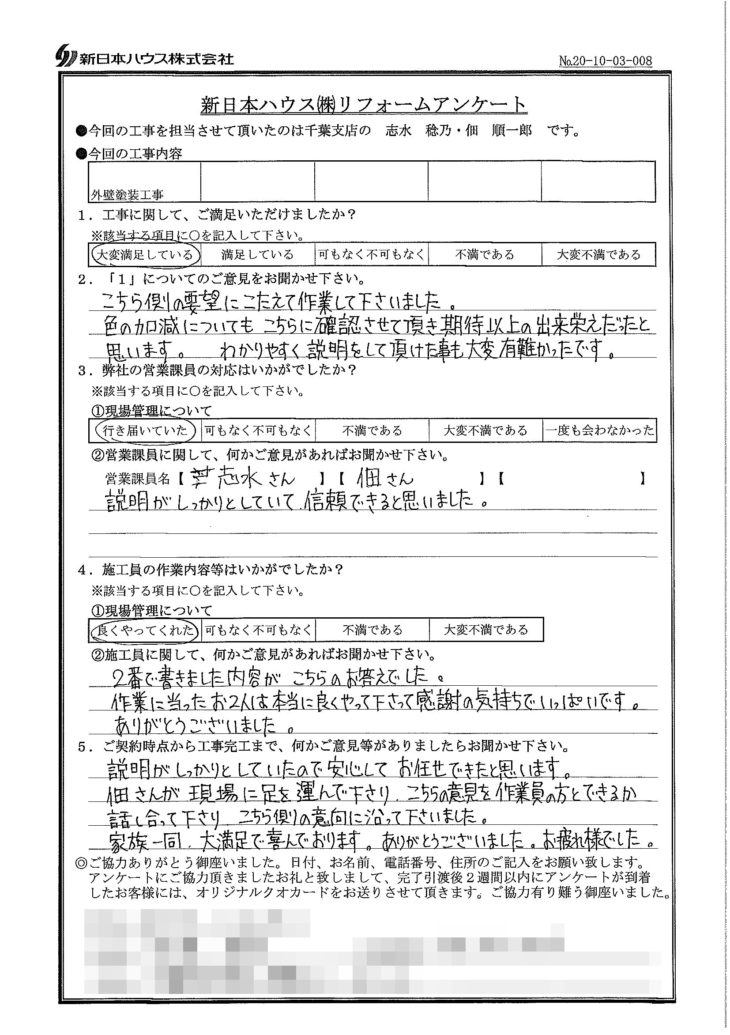 新日本ハウス株式会社
No.20-10-03-008
新日本ハウス㈱リフォームアンケート
●今回の工事を担当させて頂いたのは千葉支店の　志水　稔乃・佃　順一郎　です。
●今回の工事内容
外壁塗装工事
1．工事に関して、ご満足いただけましたか？
※該当する項目に○を記入して下さい。
大変満足している　満足している　可もなく不可もなく　不満である　大変不満である
2．「1」についてのご意見をお聞かせ下さい。
こちら側の要望にこたえて作業して下さいました。
色の加減についてもこちらに確認させて頂き期待以上の出来栄えだったと
思います。　わかりやすく説明をして頂けた事も大変有難かったです。
3．弊社の営業課員の対応はいかがでしたか？
※該当する項目に○を記入して下さい。
①現場管理について
行き届いていた　可もなく不可もなく　不満である　大変不満である　一度も会わなかった
②営業課員に関して、何かご意見があればお聞かせ下さい。
営業課員名【 志水さん 】【 佃さん 】【 】
説明がしっかりとしていて、信頼できると思いました。
4．施工員の作業内容等はいかがでしたか？
※該当する項目に○を記入して下さい。
①現場管理について
良くやってくれた　可もなく不可もなく　不満である　大変不満である
②施工員に関して、何かご意見があればお聞かせ下さい。
2番で書きました内容がこちらのお答えでした。
作業に当ったお2人は本当に良くやって下さって感謝の気持ちでいっぱいです。
ありがとうございました。
5．ご契約時点から工事完工まで、何かご意見等がありましたらお聞かせ下さい。
説明がしっかりとしていたので安心してお任せできたと思います。
佃さんが現場に足を運んで下さり、こちらの意見を作業員の方とできるか
話し合って下さり、こちら側の意向に沿って下さいました。
家族一同、大満足で喜んでおります。ありがとうございました。お疲れ様でした。
◎ご協力ありがとう御座いました。日付、お名前、電話番号、住所のご記入をお願い致します。
アンケートにご協力頂きましたお礼と致しまして、完了引渡後2週間以内にアンケートが到着
したお客様には、オリジナルクオカードをお送りさせて頂きます。ご協力有り難う御座いました。